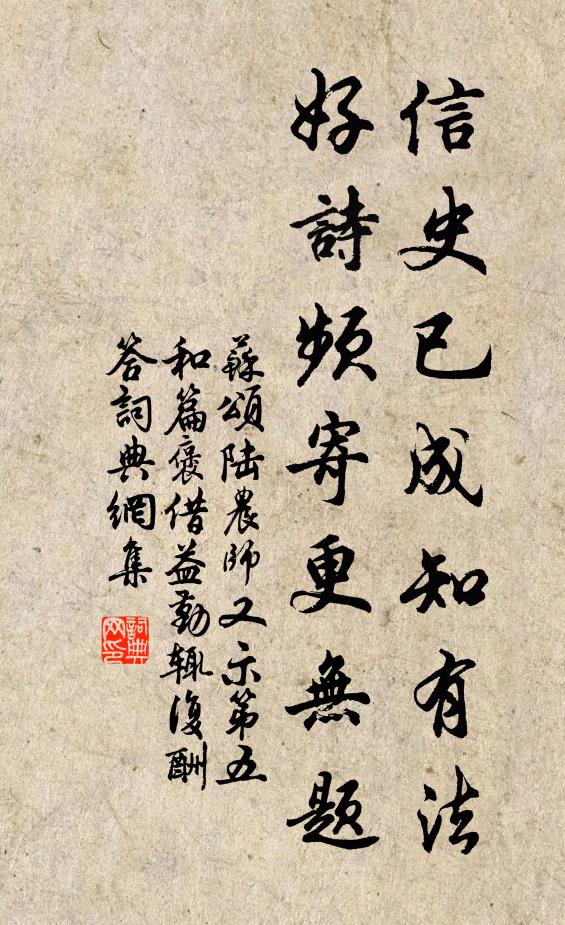 信史已成知有法
好詩頻寄更無題
蘇頌陸農師又示第五
和篇褒借益勤輒復酬
答詞典網集
詞典網印